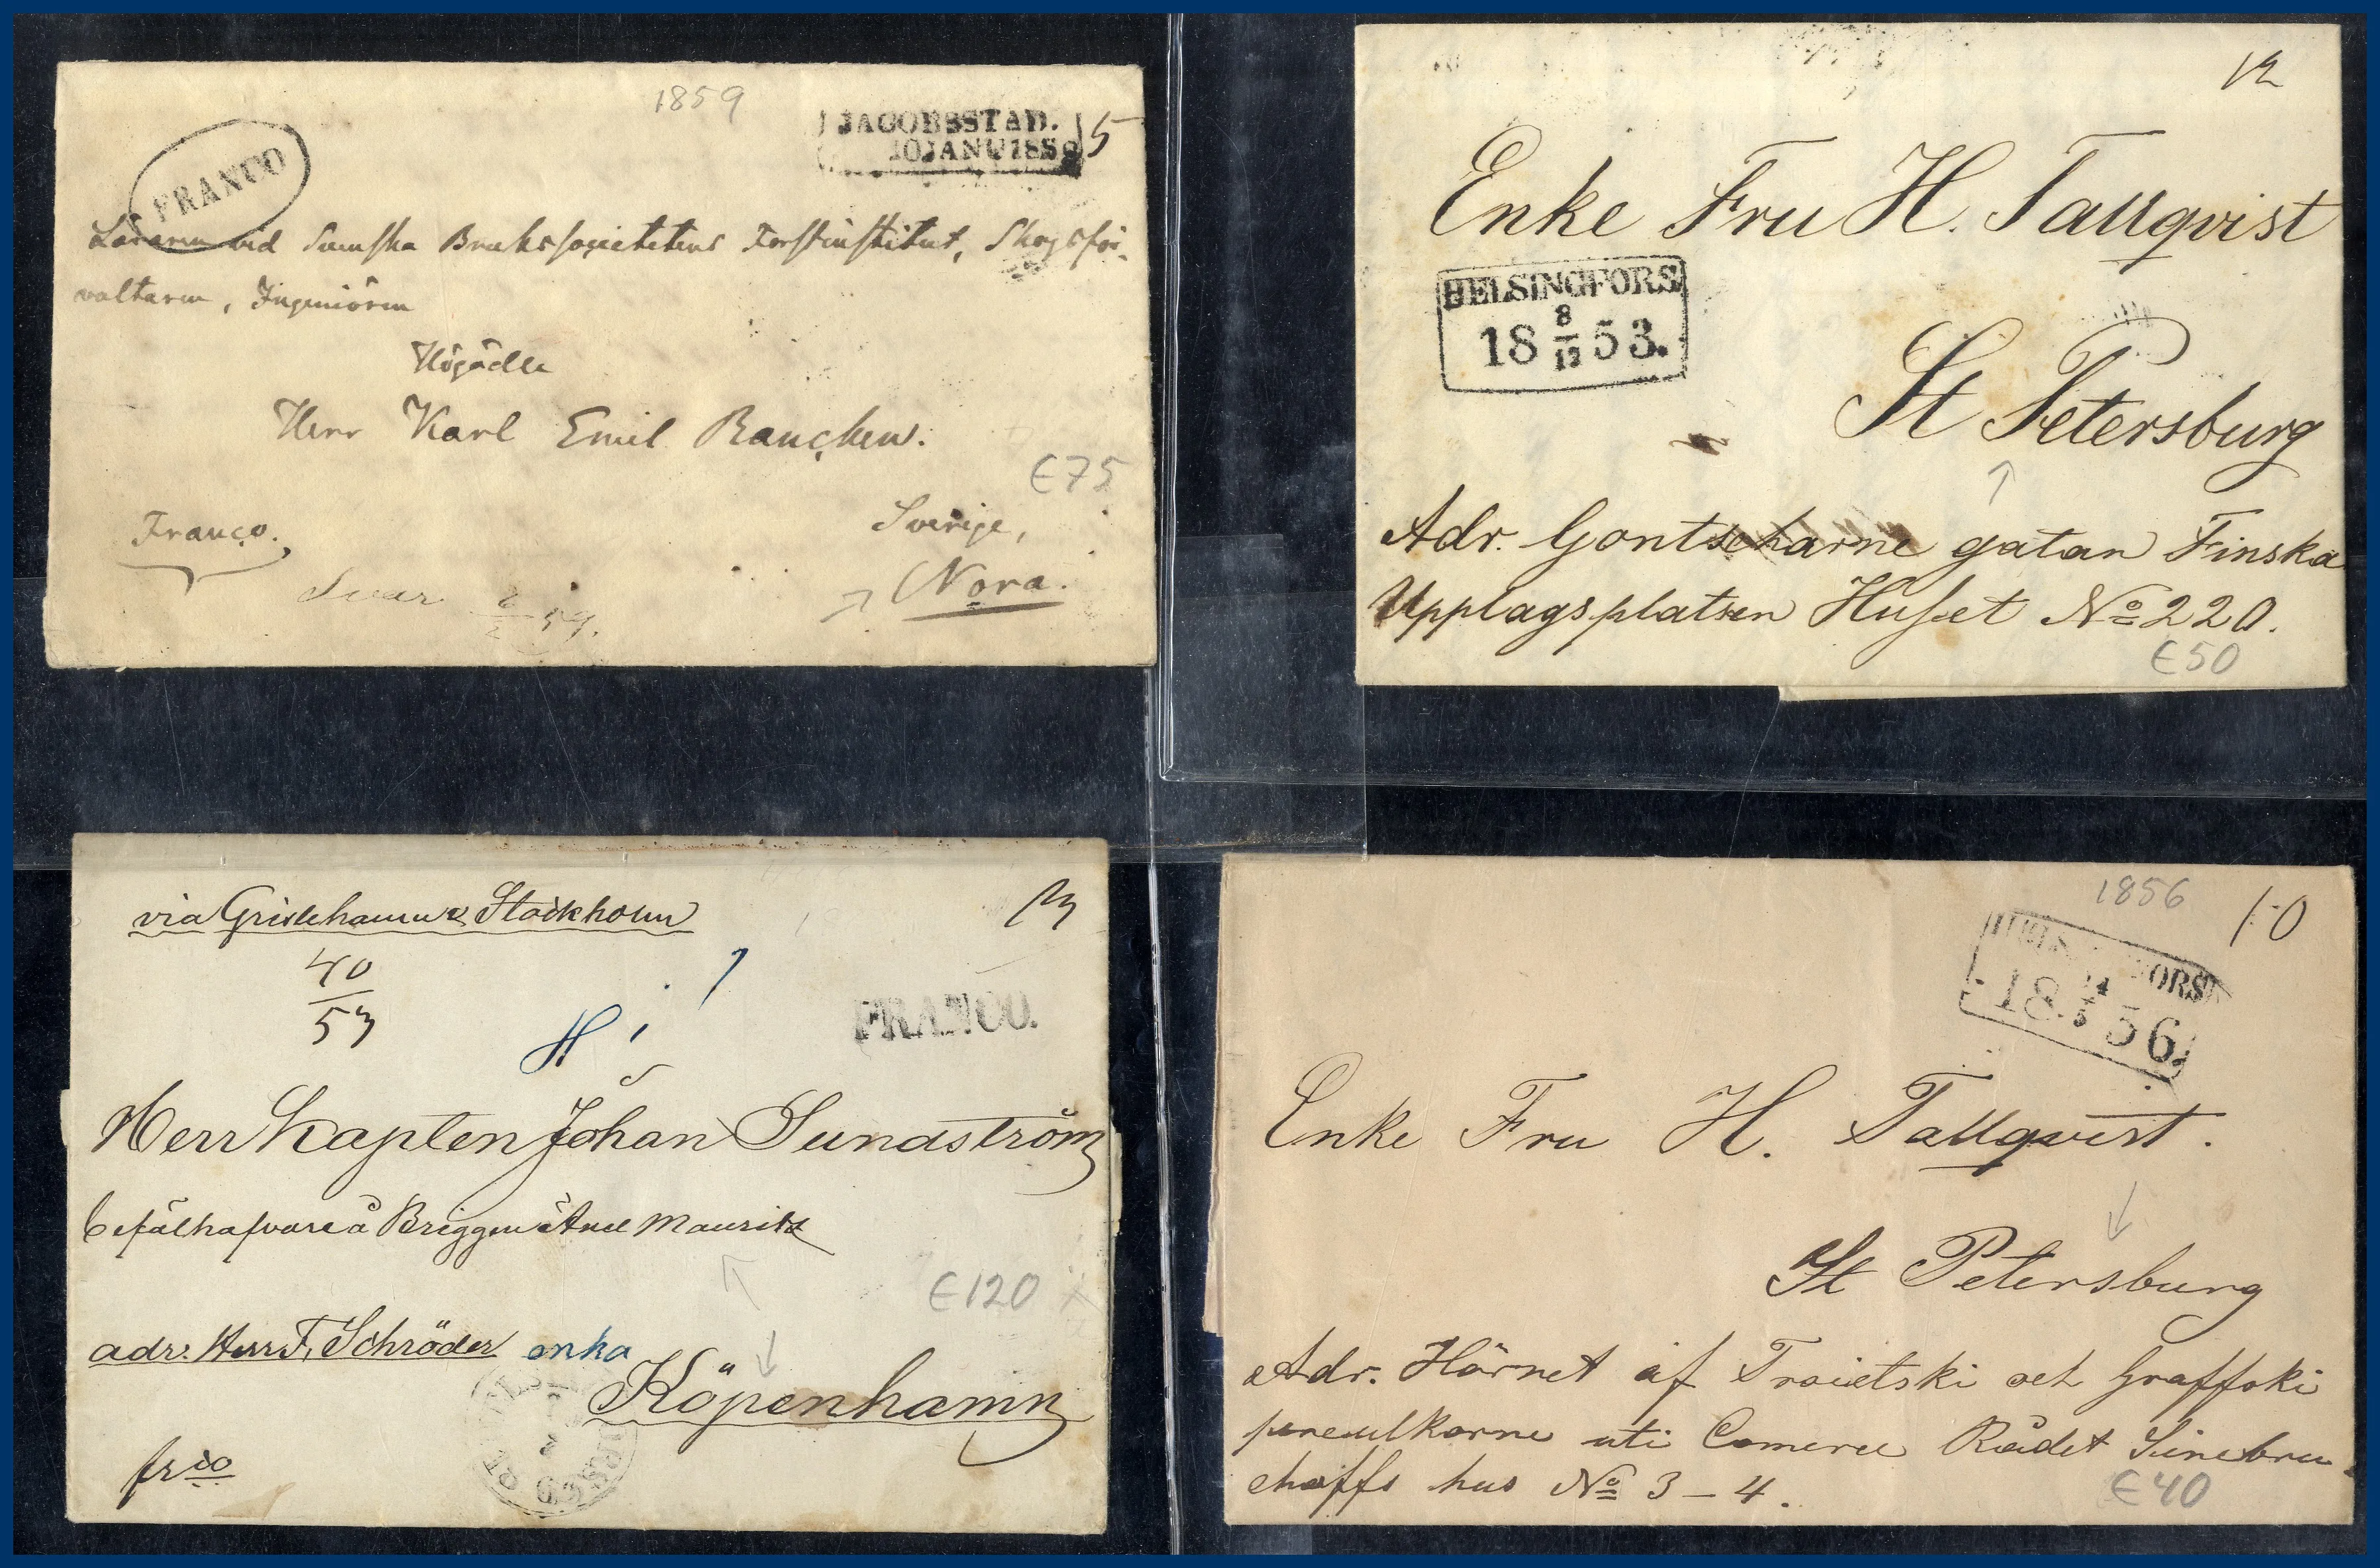 1859
JACOBSSTAD.
10 JANU 1859
5
FRANCO
Läraren vid Svenska Brukssocietetens Forstinstitut, Skogsför-
valtaren, Ingeniören
Högädle
Herr Karl Emil
€75
Sverige,
Franco.
Nora.
Svar 2/2 59.
12
Enke Fru H. Tallqvist
HELSINGFORS
18 8/12 53.
St Petersburg
Adr. Gontscharne gatan Finska
Upplagsplatsen Huset No 220.
€50
via Grislehamn & Stockholm
40
53
FRANCO.
Herr Kapten Johan Sundström
befälhafvare å Briggen
€120
adr. Herr F. Schröder enka
Köpenhamn
frco
1856
10
HELSINGFORS
18 14/5 56.
Enke Fru H. Tallqvist.
St Petersburg
Adr. Hörnet af Troietski och Graffski
pereulkarne uti Comerce Rådet Sinebru-
choffs hus No 3-4.
€40